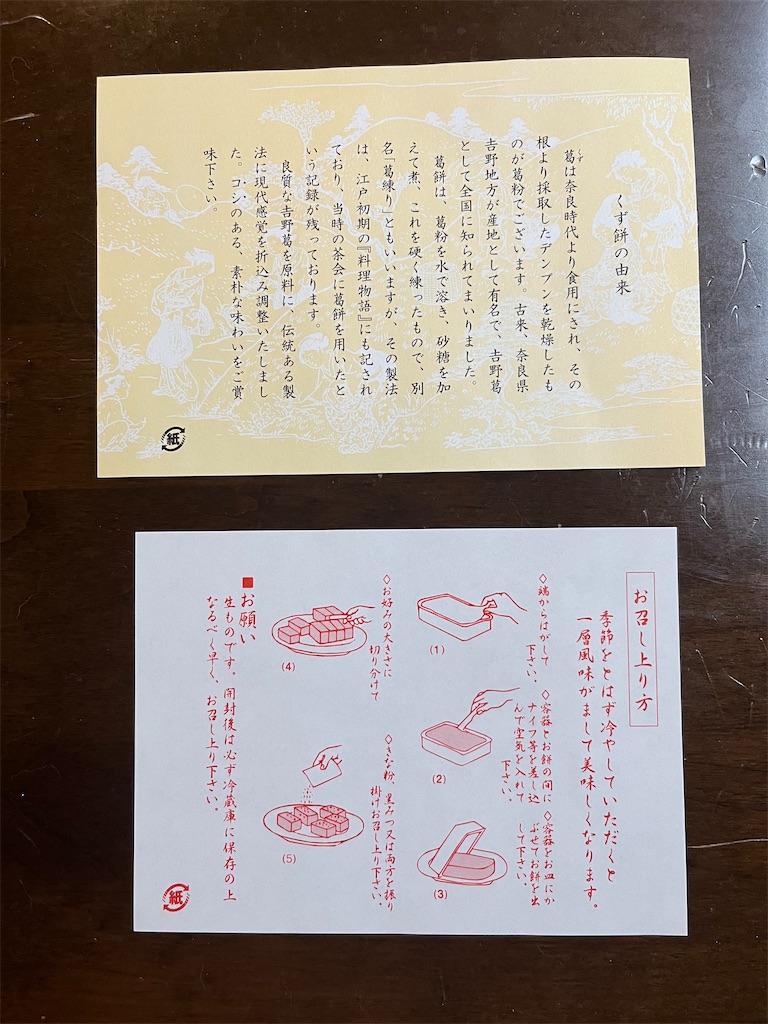 くず餅の由来
くず
葛は奈良時代より食用にされ、その
根より採取したデンプンを乾燥したも
のが葛粉でございます。古来、奈良県
吉野地方が産地として有名で、吉野葛
として全国に知られてまいりました。
葛餅は、葛粉を水で溶き、砂糖を加
えて煮、これを硬く練ったもので、別
名「葛練り」ともいいますが、その製法
は、江戸初期の『料理物語』にも記され
ており、当時の茶会に葛餅を用いたと
いう記録が残っております。
良質な吉野葛を原料に、伝統ある製
法に現代感覚を折込み調整いたしまし
た。コシのある、素朴な味わいをご賞
味下さい。
紙
お召し上り方
季節をとはず冷やしていただくと
一層風味がまして美味しくなります。
◇端からはがして
下さい。
(1)
◇容器とお餅の間に
ナイフ等を差し込
んで空気を入れて
下さい。
(2)
◇容器をお皿にか
ぶせてお餅を出
して下さい。
(3)
◇お好みの大きさに
切り分けて
(4)
◇きな粉、黒みつ又は両方を振り
掛けお召し上り下さい。
(5)
■お願い
生ものです。開封後は必ず冷蔵庫に保存の上
なるべく早く、お召し上り下さい。
紙